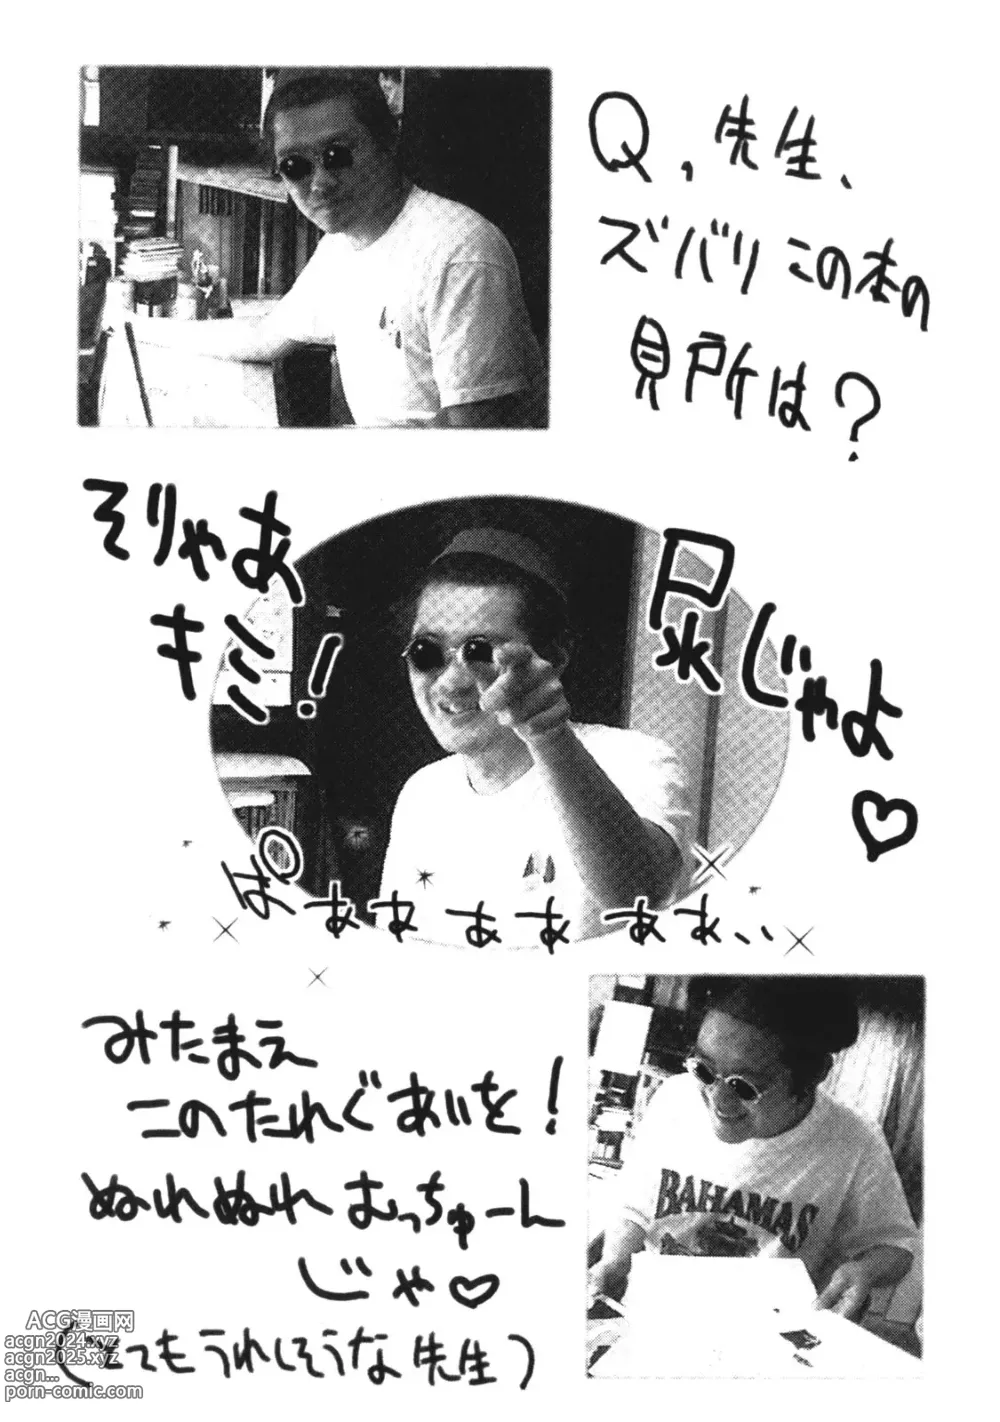 Q、先生、
ズバリこの本の
見所は?
そりゃあ
キミ!
尿じゃよ♡
ぱぁぁぁぁぁぁ、、
BAHAMAS
みたまえ
このたれぐあいを!
ぬれぬれむっちゅーん
じゃ♡
(とてもうれしそうな先生)
ACG漫画网
acgn2024.xyz
acgn2025.xyz
acgn...
porn-comic.com